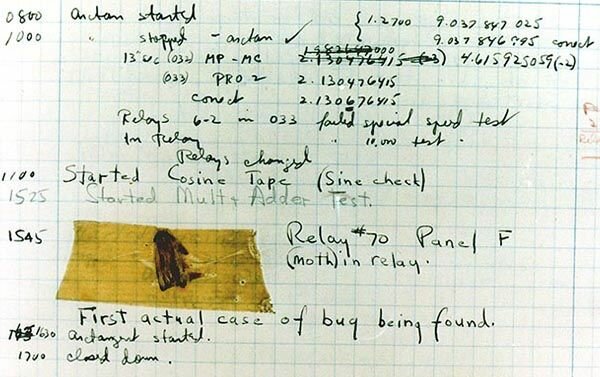 0800 arctan started { 1.2700 9.037 847 025
1000 " stopped - arctan ✓ 9.037 846 995 correct
13" uc (032) MP - MC 2.130476415 4.615925059(-2)
(033) PRO 2 2.130476415
correct 2.130676415
Relays 6-2 in 033 failed special speed test
in Relay " 10,000 test .
Relays changed
1100 Started Cosine Tape (Sine check)
1525 Started Mult + Adder Test.
1545 Relay #70 Panel F
(moth) in relay.
First actual case of bug being found.
1630 arctangent started.
1700 closed down.